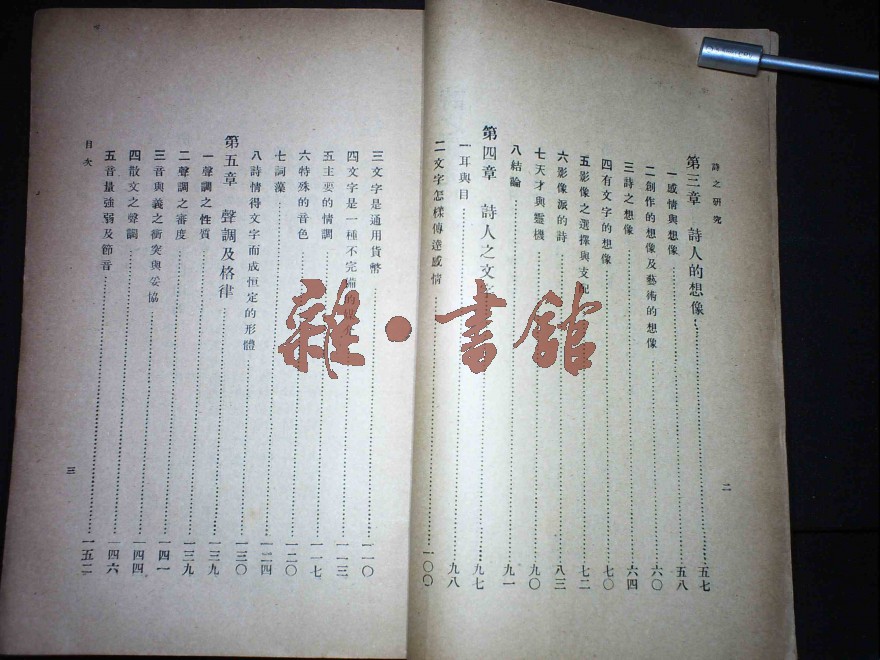 詩之研究
二
第三章 詩人的想像……五七
一 感情與想像……五八
二 創作的想像及藝術的想像……六〇
三 詩之想像……六四
四 有文字的想像……七〇
五 影像之選擇與支配……七二
六 影像派的詩……八三
七 天才與靈機……九〇
八 結論……九一
第四章 詩人之文字……九七
一 耳與目……九八
二 文字怎樣傳達感情……一〇〇
三 文字是通用貨幣……一一〇
四 文字是一種不完備的……一一三
五 主要的情調……一一七
六 特殊的音色……一二〇
七 詞藻……一二四
八 詩情得文字而成恒定的形體……一三〇
第五章 聲調及格律……一三九
一 聲調之性質……一三九
二 聲調之審度……一四一
三 音與義之衝突與妥協……一四四
四 散文之聲調……一四六
五 音量強弱及節音……一五二
目次
三
雜·書館